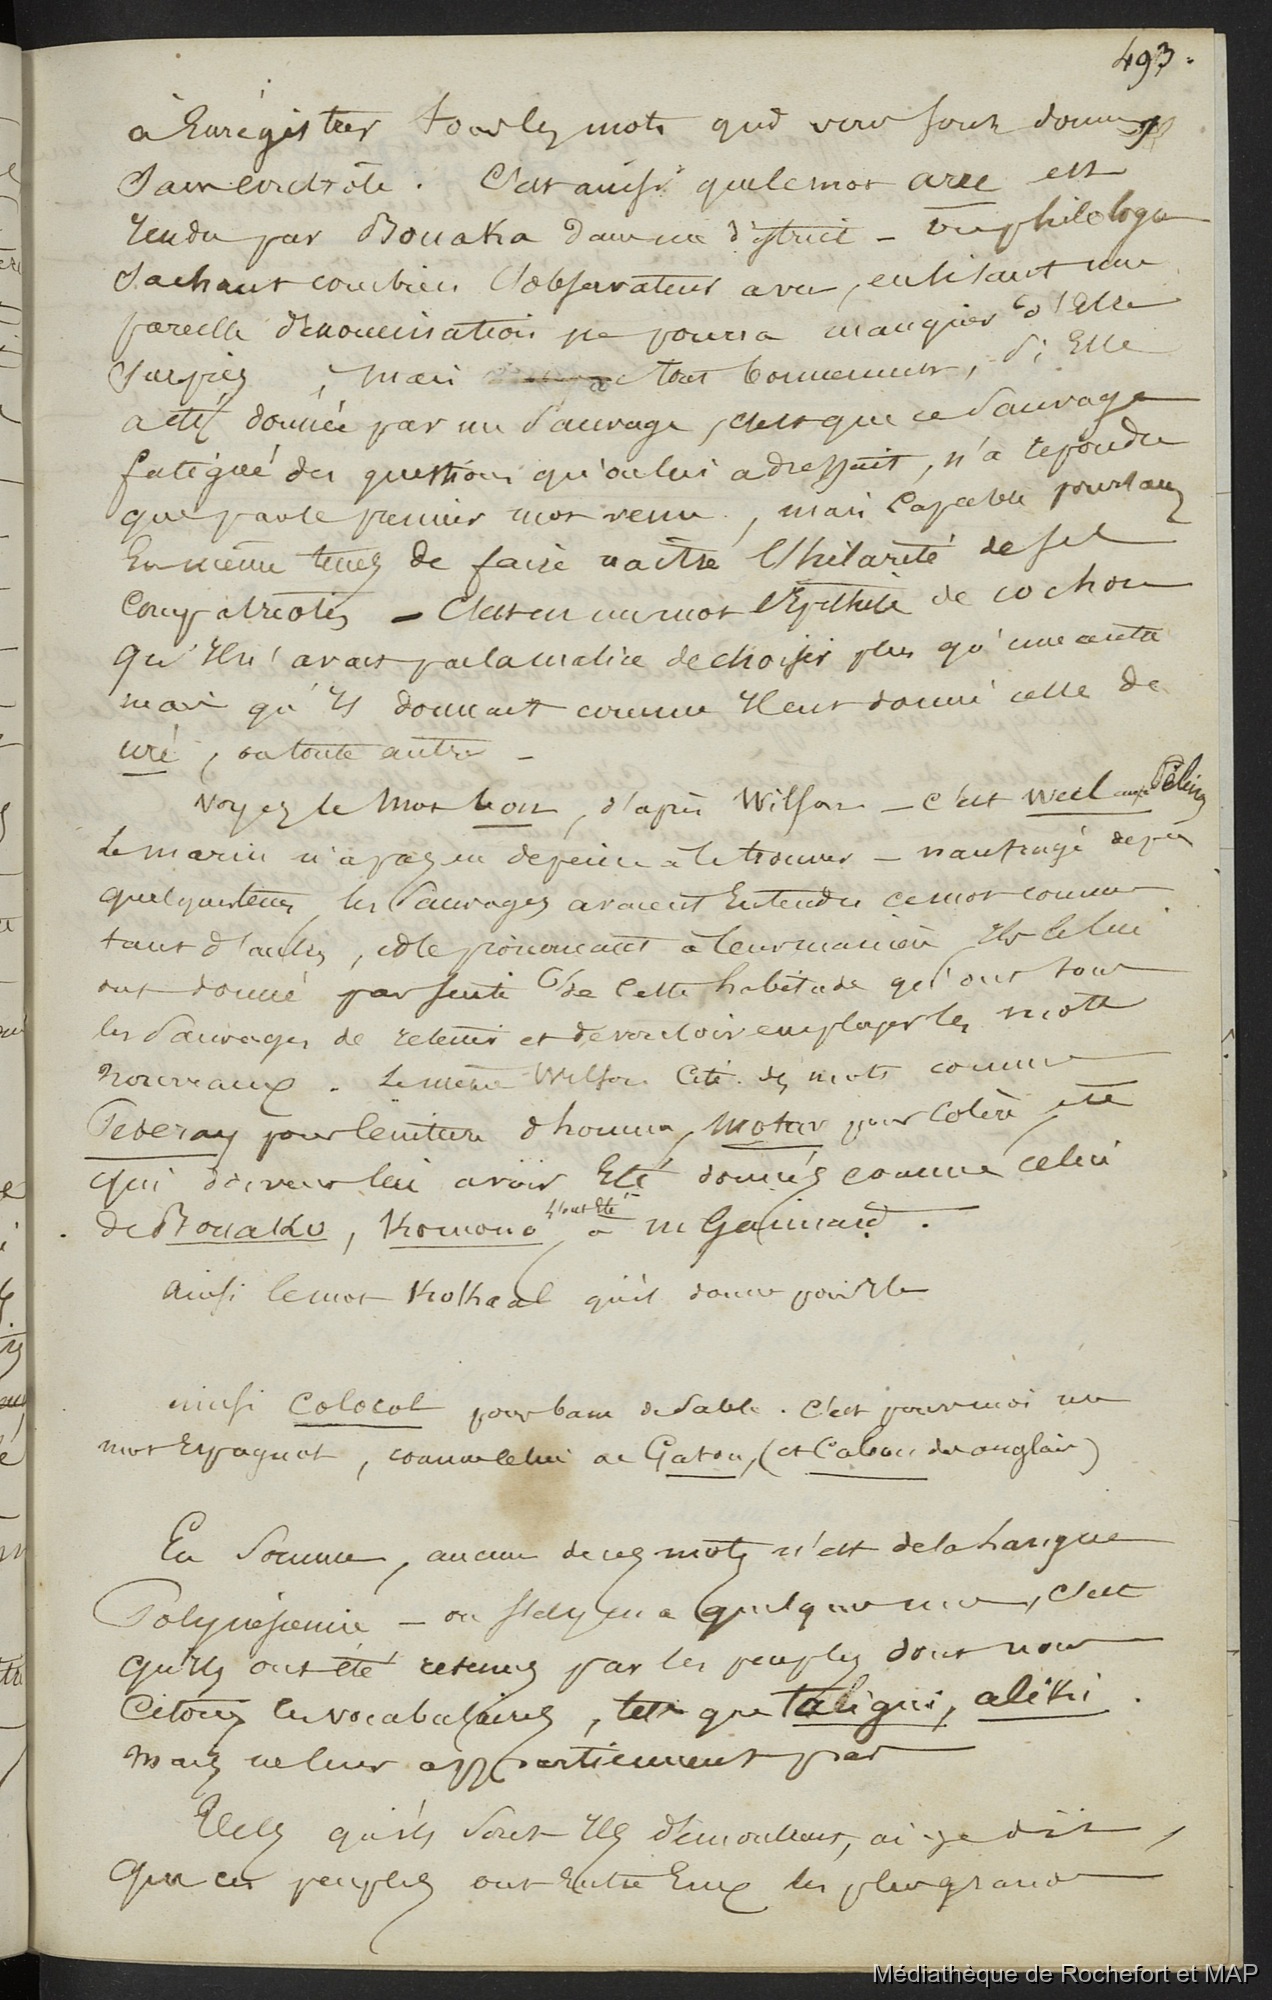 493.
à Enrégistrer tous les mots qu'd vous sont donnés
sans contrôle. C'est ainsi que le mot arec est
rendu par Bouaka dans un district - un philologue
Sachant combien l'observateur a vu, en lisant une
pareille dénomination ne pourra manquer d'Etre
surpris, mais tout bonnement, si Elle
a été donnée par un Sauvage, c'est que ce Sauvage
fatigué des questions qu'on lui adressait, n'a répondu
que par le premier mot venu, mais capable pourtant
En même tems de faire naître l'hilarité de ses
Compatriotes - C'est en un mot l'Epithète de cochon
qu'Il avait par la malice de choisir plus qu'une autre
mais qu'Il donnait comme Il eut donné celle de
uré, ou toute autre -
Voyez le mot bon, d'après Wilson - c'est weel aux Pelew
Le marin n'a pas eu de peine à le trouver - naufragé depuis
quelques tems, les Sauvages avaient Entendu ce mot comme
tant d'autres, et le prononçant à leur manière Ils le lui
ont donné par suite de cette habitude qu'ont tous
les Sauvages de retenir et de vouloir employer les mots
nouveaux. Le même Wilson cite des mots comme
Pederay pour ceinture d'homme, Motur pour Colère, etc
qui doivent lui avoir Eté donnés comme celui
de Bouaka, Komono l'ont Eté à m Gaimard.
Ainsi le mot Kokaal qu'il donne pour Ile
ainsi Colocol pour banc de Sable. C'est pour moi un
mot Espagnol, comme celui de Gaton, (et Cabou des anglais)
En Somme, aucun de ces mots n'est de la Langue
Polynésienne - ou s'Il y en a quelqu'un, c'est
qu'Ils ont été retenus par les peuples dont nous
Citons les vocabulaires, tels que taligui, aliki.
mais ne leur appartiennent pas
Tels qu'ils sont Ils démontrent, ai-je dit,
que ces peuples ont Entre Eux les plus grands
Médiathèque de Rochefort et MAP